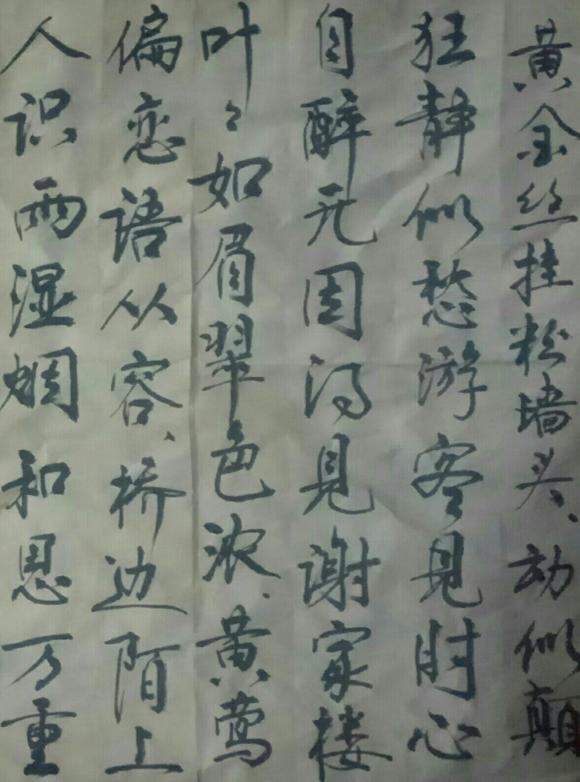 黄金丝挂粉墙头、动似颠
狂静似愁游客见时心
自醉无因得见谢家楼
叶々如眉翠色浓、黄莺
偏恋语从容、桥边陌上
人识雨湿烟和恩万重